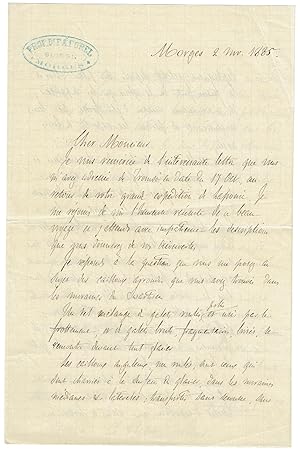 PROF. DR F. A. FOREL
MORGES
Morges 2 nov. 1885.
Cher Monsieur
Je vous remercie de l'intéressante lettre que vous
m'avez adressée de Tromsö en date du 17 Oct. au
retour de votre grande expédition de Laponie. Je
me réjouis de l'heureuse réussite de ce beau
voyage et j'attends avec impatience les descriptions
que vous donnerez de vos
Je réponds à la question que vous me posez au
sujet des cailloux que vous avez trouvés dans
les moraines du
Un tel mélange de galets roulés, polis et usés par le
frottement, et de galets bruts se
rencontre devant tout glacier
Les cailloux anguleux, non roulés, sont ceux qui
ont charriés à la surface du glacier, dans les moraines
médianes et latérales; transportés sans